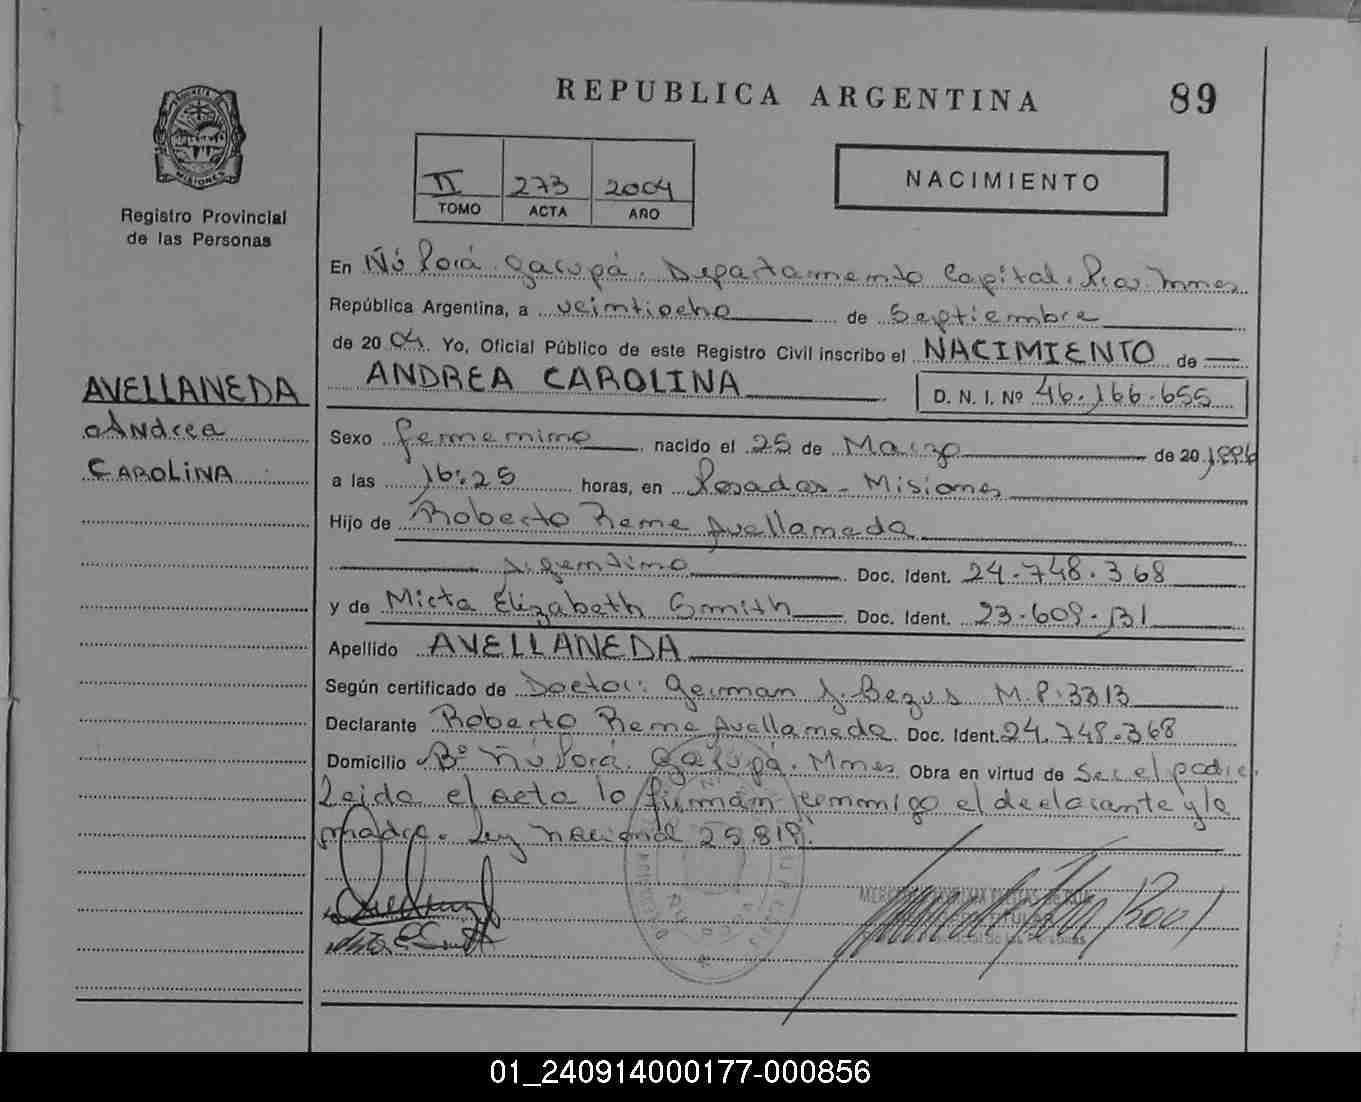 REPUBLICA ARGENTINA
89
PROVINCIA DE
MISIONES
Registro Provincial
de las Personas
II 273 2004
TOMO ACTA AÑO
NACIMIENTO
En Ñú Porá. Garupá. Departamento Capital. Pcia. Mnes
República Argentina, a veintiocho de Septiembre
de 2004. Yo, Oficial Público de este Registro Civil inscribo el NACIMIENTO de
ANDREA CAROLINA
D. N. I. Nº 46.166.655
AVELLANEDA
Andrea
CAROLINA
Sexo femenino nacido el 25 de Marzo de 20 1996
a las 16:25 horas, en Posadas - Misiones
Hijo de Roberto Rene Avellaneda
Argentino Doc. Ident. 24.748.368
y de Mirta Elizabeth Smith Doc. Ident. 23.609.131
Apellido AVELLANEDA
Según certificado de Doctor: German J. Bezus M.P. 3313
Declarante Roberto Rene Avellaneda Doc. Ident. 24.748.368
Domicilio Bº Ñú Porá. Garupá. Mnes Obra en virtud de Ser el padre.
Leida el acta lo firman conmigo el declarante y la
madre. Ley nacional 25.819.
TITULAR
01_240914000177-000856